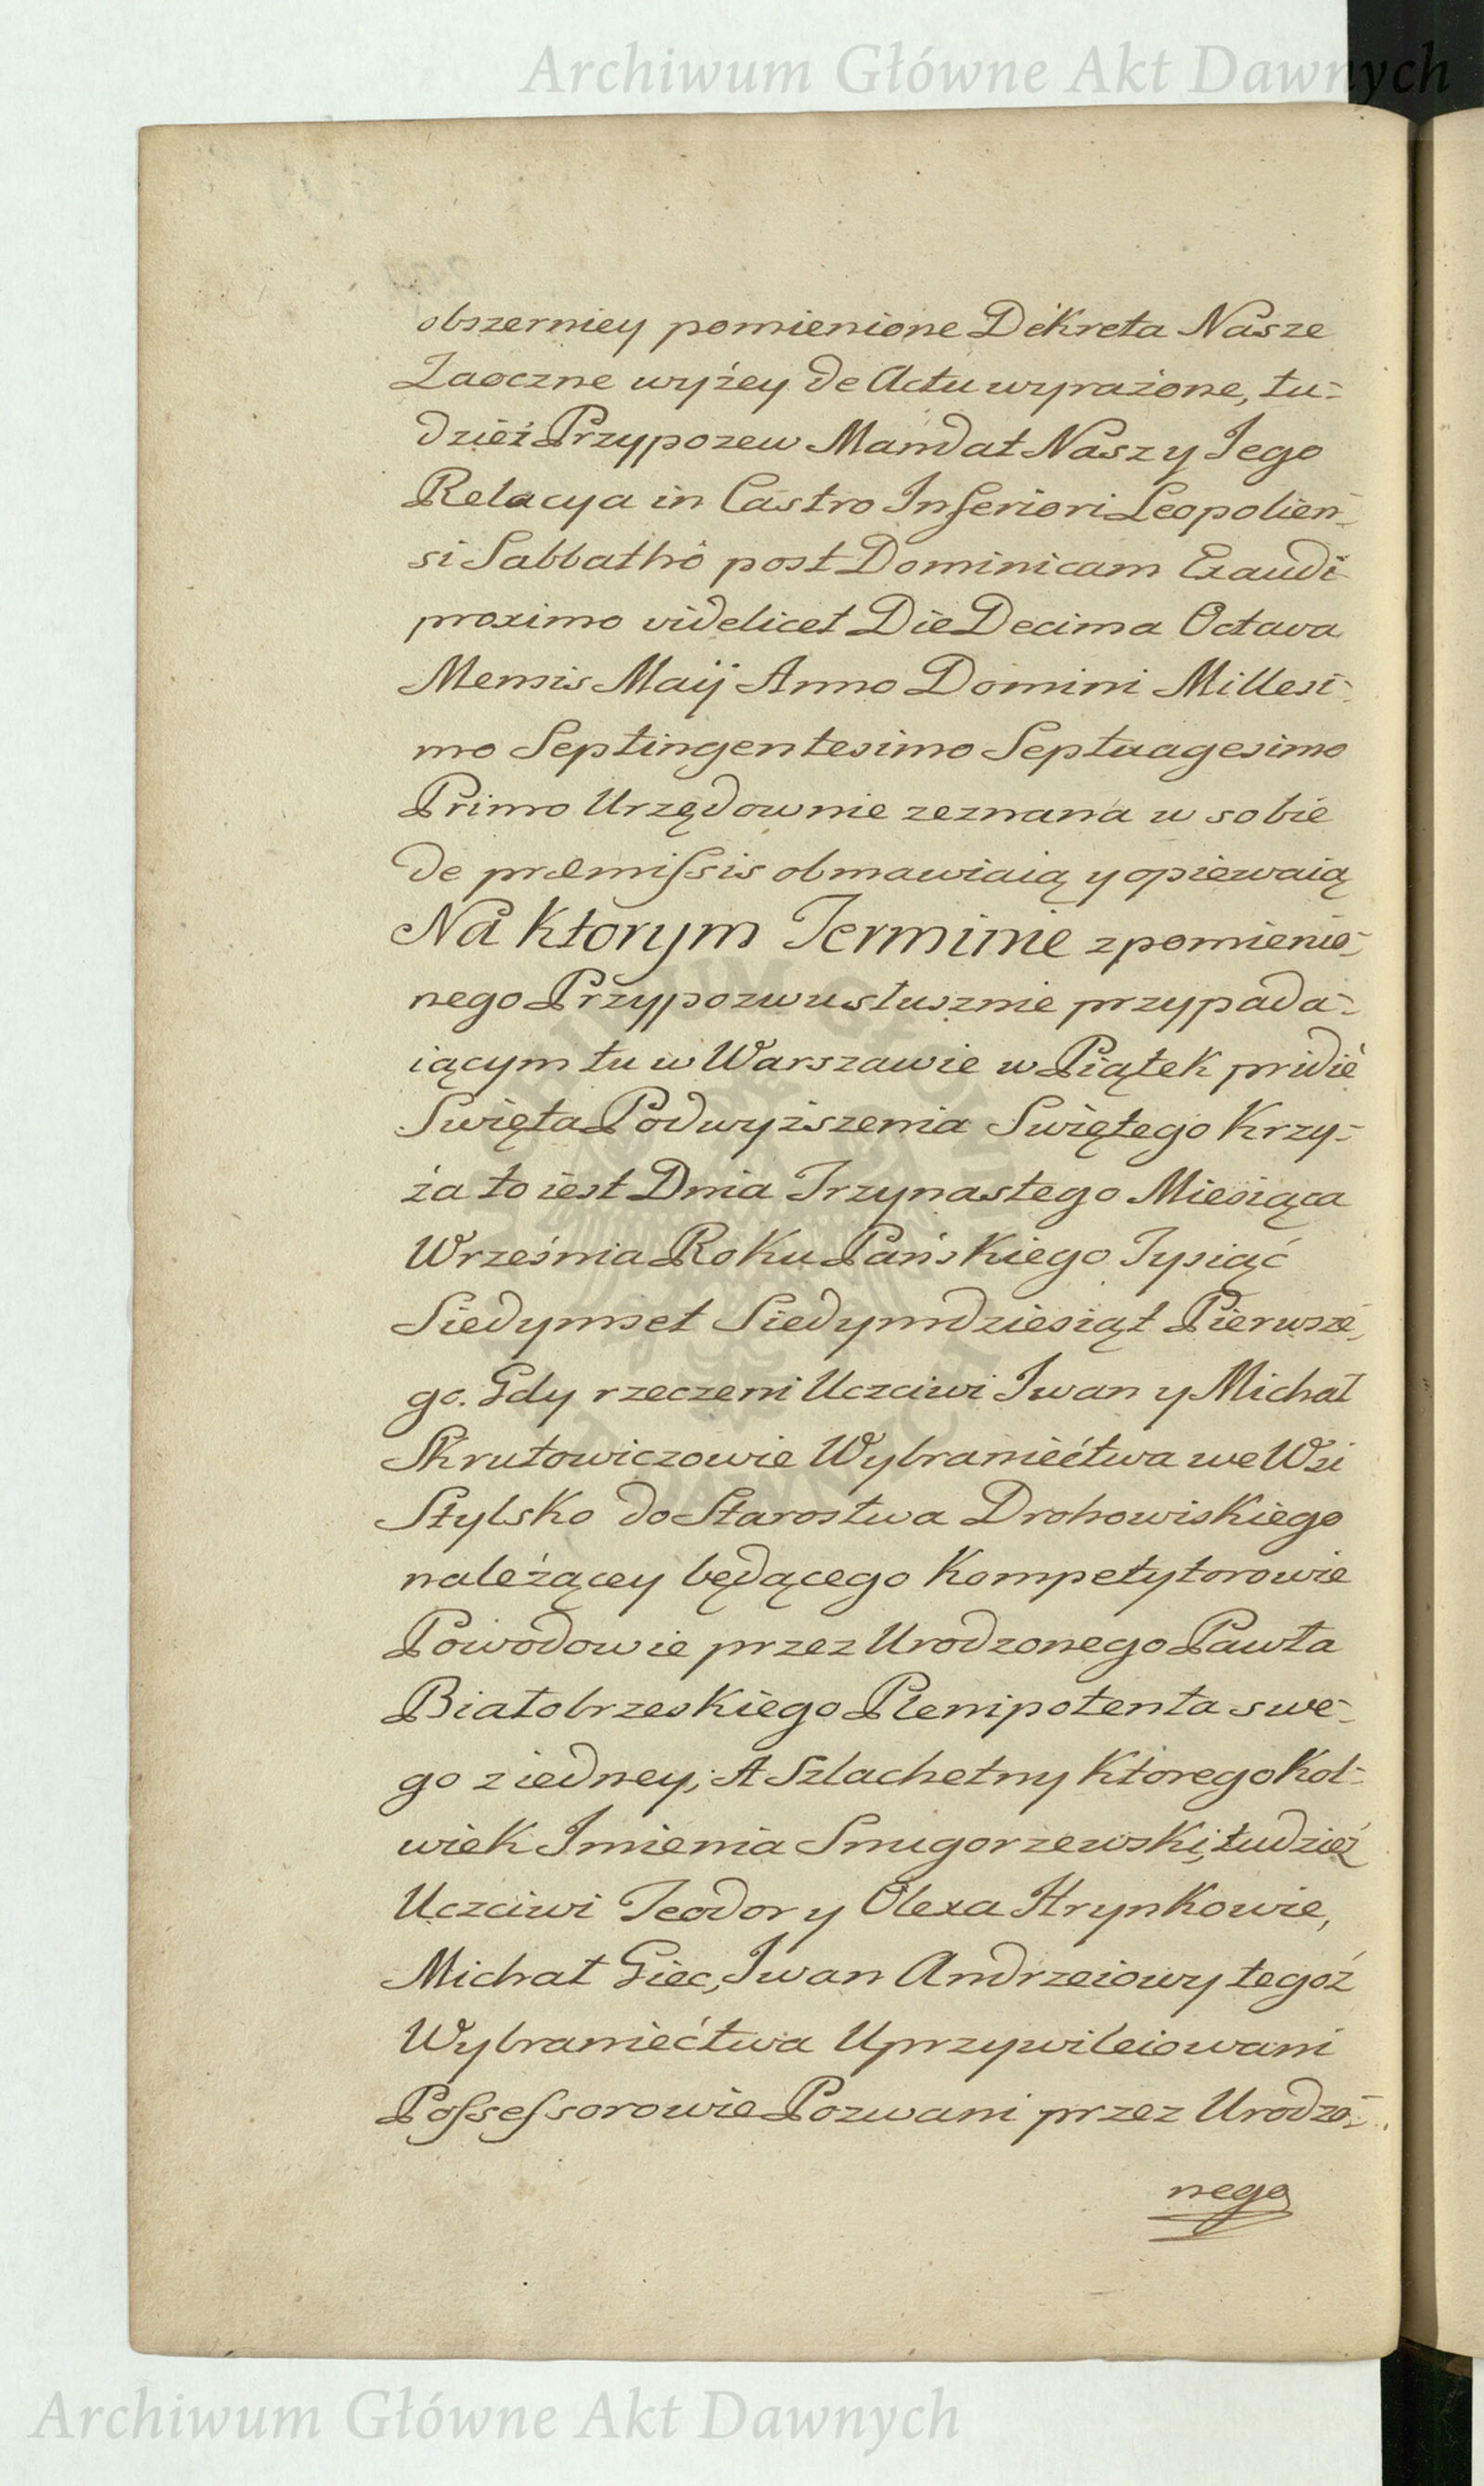 Archiwum Główne Akt Dawnych
obszerniey pomienione Dekreta Nasze
Zaoczne wyżey de Actu wyrażone, tu-
dzież Przypozew Mandat Nasz y Jego
Relacya in Castro Inferiori Leopolien-
si Sabbatho post Dominicam Exaudi
proximo videlicet Die Decima Octava
Mensis Maij Anno Domini Millesi-
mo Septingentesimo Septuagesimo
Primo Urzędownie zeznana w sobie
de præmiſsis obmawiaią y opiewaią
Na Ktorym Terminie z pomienio-
nego Przypozwu słusznie przypada-
iącym tu w Warszawie w Piątek pridie
Swięta Podwyższenia Swiętego Krzy-
ża to iest Dnia Trzynastego Miesiąca
Września Roku Pańskiego Tysiąć
Siedymset Siedymdziesiąt Pierwsze-
go. Gdy rzeczeni Uczciwi Iwan y Michał
Skrutowiczowie Wybraniećtwa we Wsi
Stylsko do Starostwa Drohowiskiego
należącey będącego Kompetytorowie
Powodowie przez Urodzonego Pawła
Białobrzeskiego Plenipotenta swe-
go z iedney; A Szlachetny Ktorego Kol-
wiek Imienia Smugorzewski, tudzież
Uczciwi Teodor y Olexa Hrynkowie,
Michał Giec, Iwan Andrzeiowy tegoż
Wybraniećtwa Uprzywileiowani
Poſseſsorowie Pozwani przez Urodzo-
nego
Archiwum Główne Akt Dawnych